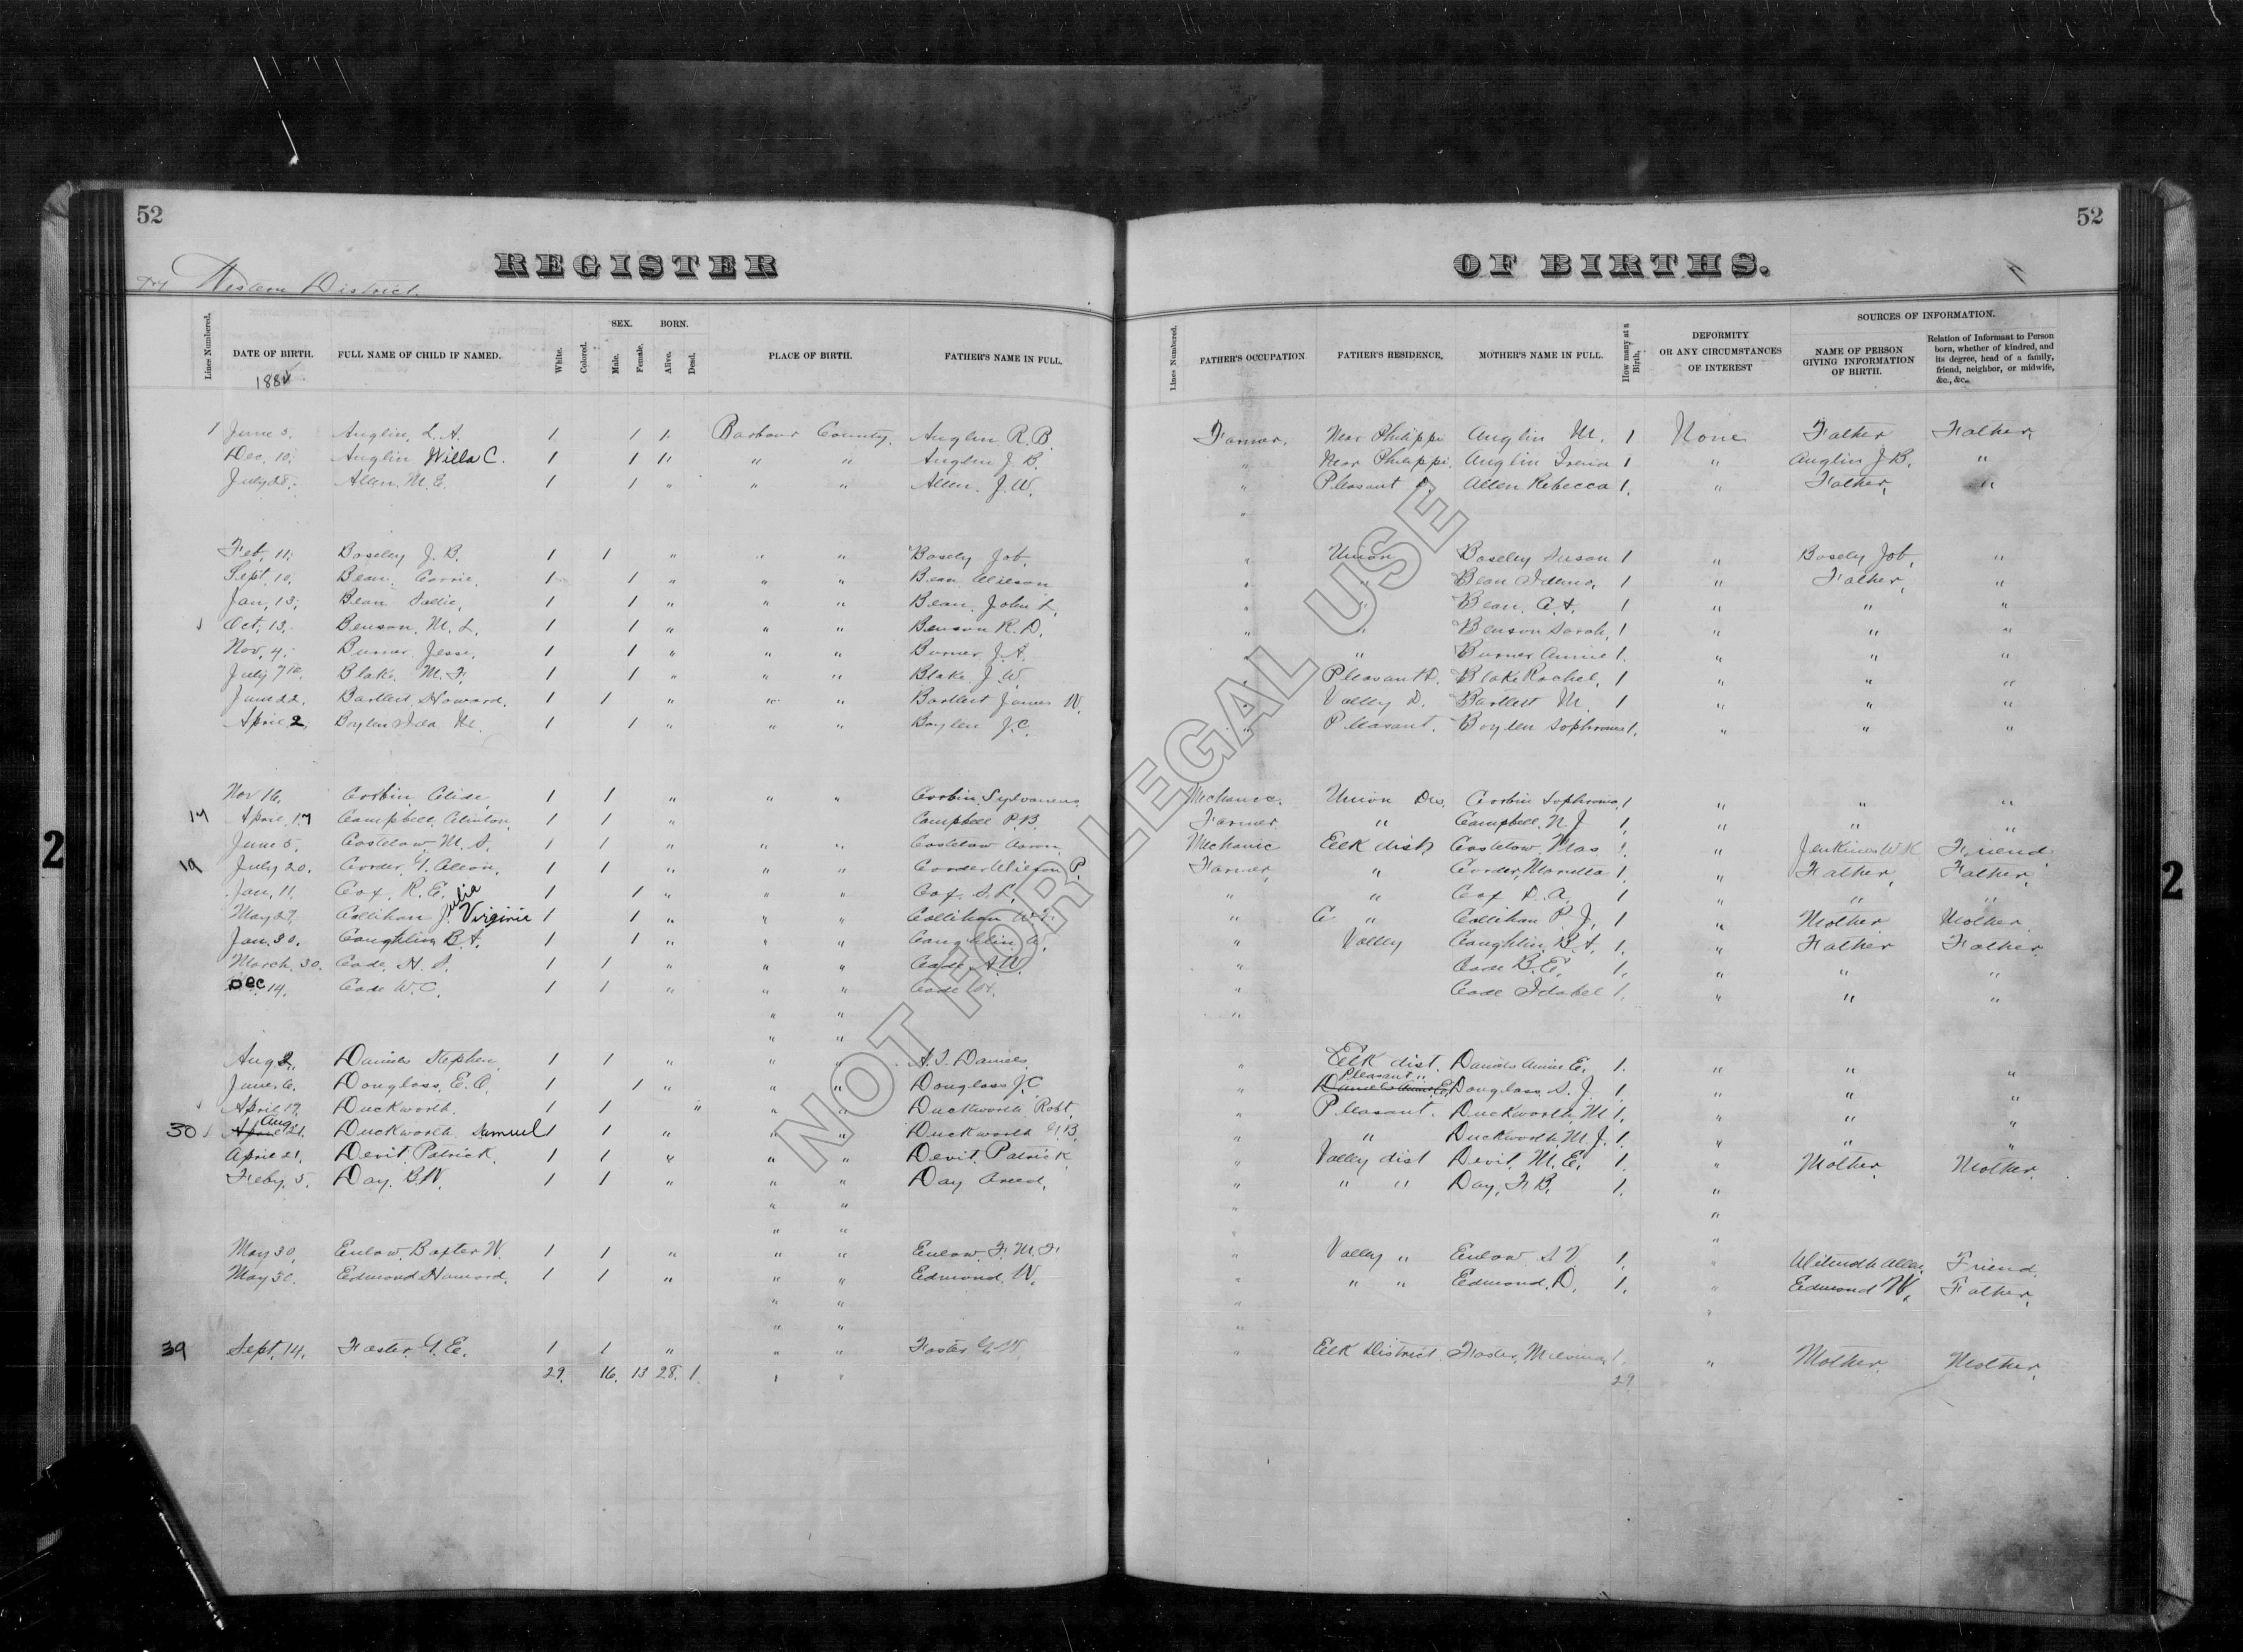 52
52
REGISTER
OF BIRTHS.
Western District.
SEX. BORN.
SOURCES OF INFORMATION.
Lines Numbered. DATE OF BIRTH. FULL NAME OF CHILD IF NAMED. White. Colored. Male. Female. Alive. Dead. PLACE OF BIRTH. FATHER'S NAME IN FULL.
Lines Numbered. FATHER'S OCCUPATION FATHER'S RESIDENCE, MOTHER'S NAME IN FULL. How many at a Birth, DEFORMITY OR ANY CIRCUMSTANCES OF INTEREST NAME OF PERSON GIVING INFORMATION OF BIRTH. Relation of Informant to Person born, whether of kindred, and its degree, head of a family, friend, neighbor, or midwife, &c., &c.
1 June 5. Anglin, L. A. 1 1 1 Barbour County. Anglin R. B. Farmer. Near Philippi Anglin M. 1 None Father Father,
Dec. 10. Anglin Willa C. 1 1 1 " " Anglin J. B. " Near Philippi, Anglin 1 " Anglin J. B. "
July 28. Allen. M. E. 1 1 " " " Allen. J. W. " Pleasant D. Allen Rebecca 1. " Father, "
"
Feb, 11. Boseley J. B. 1 1 " " " Bosely Job, " Union Boseley Susan 1 " Bosely Job, "
Sept. 10. Bean, Carrie, 1 1 " " " Bean Wilson " " Bean 1 " Father, "
Jan, 13, Bean Sallie, 1 1 " " " Bean, John L, " " Bean, 1 " " "
Oct, 13, Benson, M. L, 1 1 " " " Benson R. D. " " Benson Sarah, 1 " " "
Nov, 4, Burner Jesse, 1 1 " " " Burner J. A. " " Burner Annie 1. " " "
July 7th Blake M. F. 1 1 " " " Blake J. W. " Pleasant D. Blake Rachel, 1 " " "
June 22. Bartlett Howard, 1 1 " " " Bartlett James W, " Valley D. Bartlett M. 1 " " "
April 2, Boylen Ida M. 1 1 " " " Boylen J. C. " Pleasant. Boylen 1. " " "
Nov 16. Corbin 1 1 " " " Corbin, Sylvanus Mechanic. Union Dis. Corbin 1 " " "
17 April, 17 Campbell, Clinton, 1 1 " Campbell P. B. Farmer " Campbell, N. J. 1. " " "
June 5. Costelow, M. S. 1 1 " " " Costelow Aaron, Mechanic Elk dist Costelow, 1. " Jenkins W. K. Friend
19 July 20. Corder, 1 1 " " " Corder Wilson P. Farmer, " Corder, 1. " Father, Father,
Jan, 11. Cox, R. E. 1 1 " " " Cox, S. L. " " Cox D. A. 1 " " "
May 27. Callihan Julia Virginie 1 1 " " " Callihan " " Callihan P. J. 1 " Mother Mother.
Jan. 30. Coughlin, B. A. 1 1 " " " Coughlin " Valley Coughlin, B. A. 1. " Father Father,
March, 30. Cade, H. S. 1 1 " " " Cade A. W. " Cade B. E. 1. " " "
Dec 14. Cade W. C. 1 1 " " " Cade " Cade Idabel 1. " " "
" " "
" "
Aug 2, Daniels Stephen 1 1 " " " Daniels " Elk dist. Daniels Annie E. 1. " " "
June 6. Douglass, E. 1 1 " " " Douglass J. C " Pleasant " Douglass, S. J. 1. " " "
April 17, Duckworth. 1 1 " " " Duckworth Robt, " Pleasant. Duckworth, M. 1. " " "
30 Aug 21. Duckworth Samuel 1 1 " " " Duckworth " " Duckworth, M. J. 1. " " "
April 21, Devit, Patrick, 1 1 " " " Devit, Patrick " Valley dist Devit, M. E. 1. " Mother, Mother,
Feby, 5. Day, B. W. 1 1 " " " Day " " " Day, F. B. 1. "
" " " "
" " " "
May 30, Enlow Baxter W. 1 1 " " " Enlow, F. M. " Valley " Enlow 1. " Friend,
May 30. Edmond Howard, 1 1 " " " Edmond, W. " " " Edmond, D. 1. " Edmond W, Father,
" " " "
" " "
39 Sept, 14. Foster, G. E. 1 1 " " " Foster G. W. " Elk District Foster, 1 " Mother, Mother,
29. 16. 13 28. 1. " " 29
2
2
NOT FOR LEGAL USE